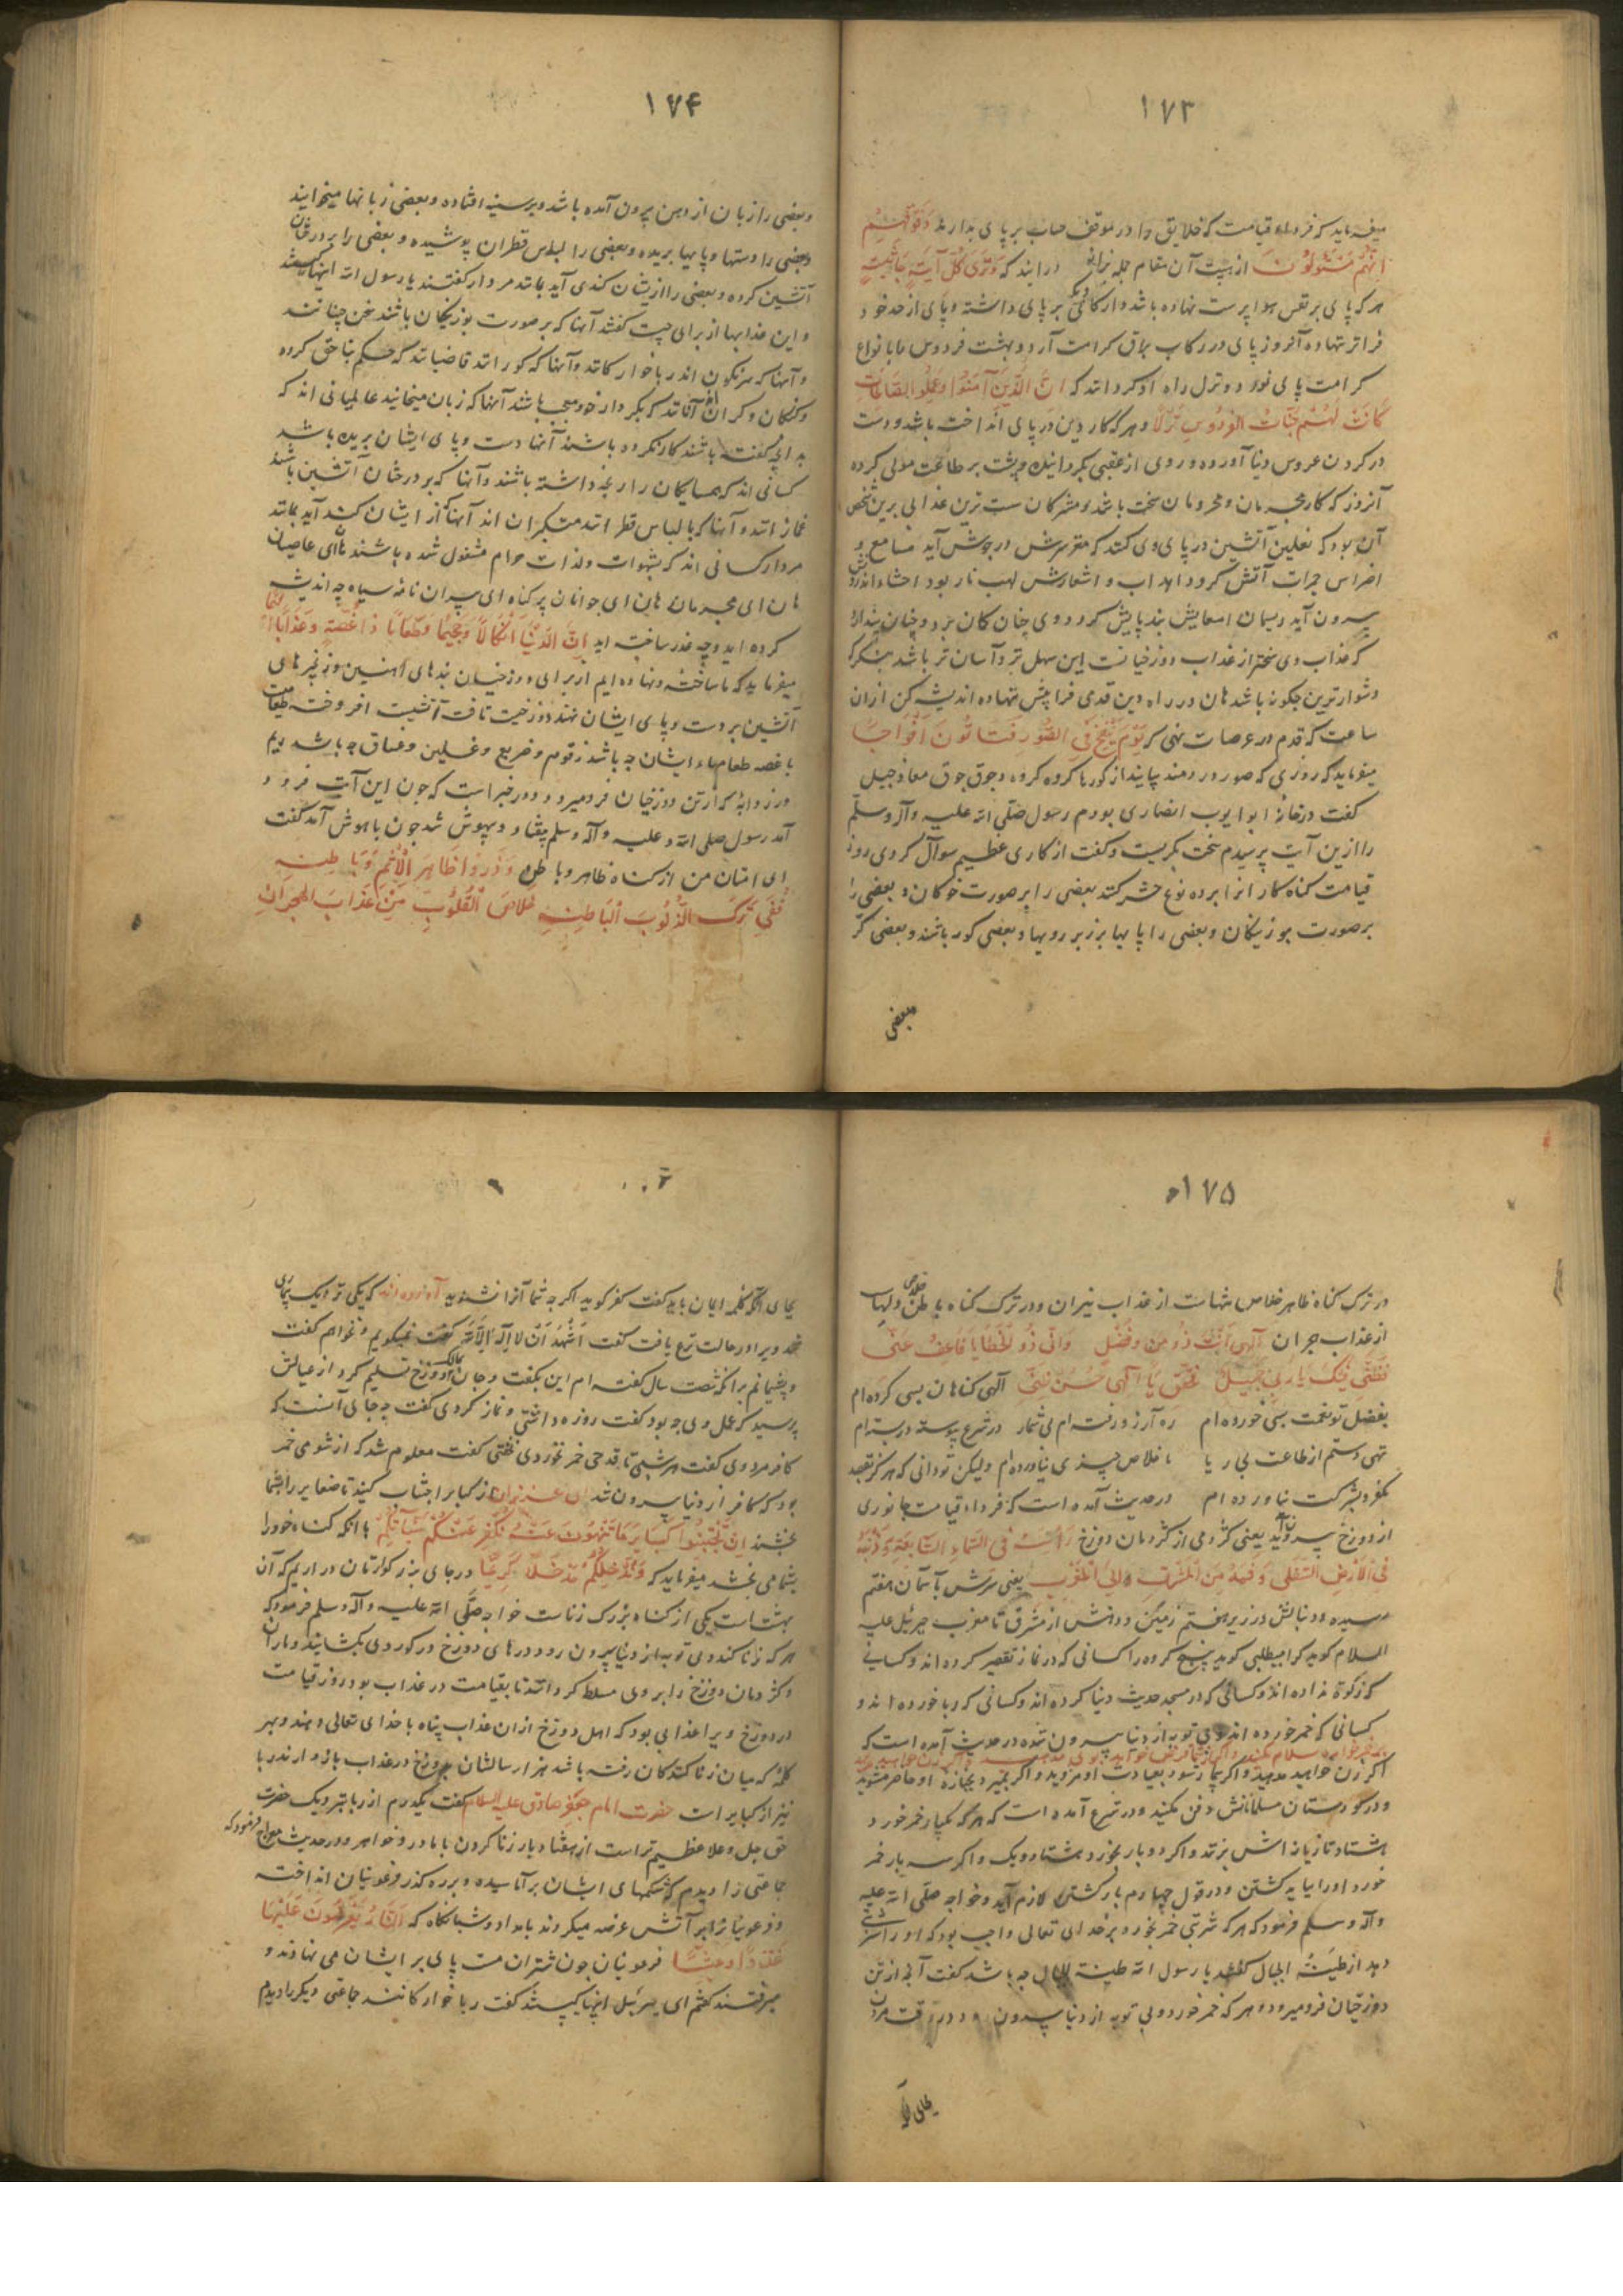 ۱۷۳
میفرماید که فرداء قیامت که خلایق را در موقف حساب بر پای بدارند وَقِفُوهُمْ
اِنَّهُمْ مَسْئُولُونَ از هیبت آن مقام جمله بزانو در آیند که وَتَرَی کُلَّ اُمَّةٍ جَاثِیَةً
هر که پای بر نفس هوا پرست نهاده باشد و ارکان بر پای داشته و پای از حد خود
فراتر ننهاده آنروز پای در رکاب براق کرامت آرد و بهشت فردوس ما با نواع
کرامت پای نورد و نزل راه او کردانند که اِنَّ الَّذِینَ آمَنُوا وَعَمِلُوا الصَّالِحَاتِ
کَانَتْ لَهُمْ جَنَّاتُ الْفِرْدَوْسِ نُزُلًا و هر که کار دین در پای انداخت باشد و دست
در کردن عروس دنیا آورده و روی از عقبی بکردانیده و پشت بر طاعت مولی کرده
آنروز که کار مجرمان و محرومان سخت باشد و مشرکان سست ترین عذابی برین شخص
آن بود که نعلین آتشین در پای وی کنند که مغز سرش در جوش آید مسامع و
اضراس جمرات آتش کردد اهداب و اشعارش لهب نار بود احشاء
بیرون آید ریسمان امعایش بند پایش کردد وی چنان کمان برد و چنان پندارد
که عذاب وی سختتر از عذاب دوزخیانست این سهل تر و آسان تر باشد بنکر که
دشوار ترین چکونه باشد هان در راه دین قدمی فرا پیش نهاده اندیشه کن از ان
ساعت که قدم در عرصات نهی که یَوْمَ یُنْفَخُ فِی الصُّورِ فَتَأْتُونَ اَفْوَاجًا
میفرماید که روزی که صور در دمند بیایند از کورها کروه کروه و جوق جوق معاذ جبل
کفت در خانهٔ ابو ایوب انصاری بودم رسول صلّی الله علیه وآله وسلّم
را ازین آیت پرسیدم سخت بکریست و کفت از کاری عظیم سوآل کردی روز
قیامت کناه کار انرا بر ده نوع حشر کنند بعضی را بر صورت خوکان و بعضی را
بر صورت بوزینکان و بعضی را پایها بر زبر رویها و بعضی کور باشند و بعضی کر
بعضی
۱۷۴
و بعضی را زبان از دهن بیرون آمده باشد و بر سینه افتاده و بعضی زبانها میخوایند
و بعضی را دستها و پایها بریده و بعضی را لباس قطران پوشیده و بعضی را بر درختان
آتشین کرده و بعضی را از ایشان کندی آید مانند مردار کفتند یا رسول الله اینها کیستند
و این عذابها از برای چیست کفتند آنها که بر صورت بوزینکان باشند سخن چینانند
و آنها که سرنکون اند ربا خوارکانند و آنها که کورانند قاضیانند که حکم بناحق کرده
و کنکان و کران آنانند که بکردار خود معجب باشند آنها که زبان میخایند عالمیانی اند که
بدانچه کفته باشند کار نکرده باشند آنها دست و پای ایشان بریده باشد
کسانی اند که همسایکان را رنجه داشته باشند و آنها که بر درختان آتشین باشند
غمازانند و آنها که با لباس قطرانند متکبران اند آنها که از ایشان کند آید مانند
مردار کسانی اند که بشهوات ولذات حرام مشغول شده باشند هان ای عاصیان
هان ای مجرمان هان ای جوانان پر کناه ای پیران نامهٔ سیاه چه اندیشه
کرده اید و چه عذر ساخته اید اِنَّ لَدَیْنَا اَنْکَالًا وَجَحِیمًا وَطَعَامًا ذَا غُصَّةٍ وَعَذَابًا اَلِیمًا
میفرماید که ما ساخته و نهاده ایم از برای دوزخیان بندهای آهنین و زنجیرهای
آتشین بر دست و پای ایشان نهند دوزخیست تافته آتشیست افروخته طعامیست
با غصه طعامهاء ایشان چه باشد زقوم و ضریع و غسلین و غساق چه باشد ریم
و زردابهٔ که از تن دوزخیان فرو میرود و در خبر است که چون این آیت فرود
آمد رسول صلی الله علیه وآله وسلم بیفتاد و بیهوش شد چون باهوش آمد کفت
ای امتان من از کناه ظاهر و باطن وَذَرُوا ظَاهِرَ الْاِثْمِ وَبَاطِنَهُ
فَفِی تَرْکِ الذُّنُوبِ الْبَاطِنَةِ خَلَاصُ الْقُلُوبِ مِنْ عَذَابِ الْهِجْرَانِ
۱۷۵
در ترک کناه ظاهر خلاص شماست از عذاب نیران و در ترک کناه باطن خلاص دلها
از عذاب هجران اِلٰهِی اَنْتَ ذُو مَنٍّ وَفَضْلٍ وَاِنِّی ذُو الْخَطَایَا فَاعْفُ عَنِّی
فَظَنِّی فِیکَ یَا رَبِّ جَمِیلٌ فَحَقِّقْ یَا اِلٰهِی حُسْنَ ظَنِّی الهی کناهان بسی کرده ام
بفضل تو نعمت بسی خورده ام ره آرزو رفته ام بی شمار در شرع پیوسته در بسته ام
تهی دستم از طاعت بی ریا با خلاص چیزی نیاورده ام ولیکن تو دانی که هرکز بقصد
بکفر و بشرکت نیاورده ام در حدیث آمده است که فرداء قیامت جانوری
از دوزخ بیرون آید یعنی کژدمی از کژدمان دوزخ رَأْسُهُ فِی السَّمَاءِ السَّابِعَةِ وَذَنَبُهُ
فِی الْاَرْضِ السُّفْلَی وَفَمُهُ مِنَ الْمَشْرِقِ اِلَی الْمَغْرِبِ یعنی سرش بآسمان هفتم
رسیده و دنبالش در زیر هفتم زمین و دهنش از مشرق تا مغرب جبرئیل علیه
السلام کوید کرا میطلبی کوید پنج کروه را کسانی که در نماز تقصیر کرده اند و کسانی
که زکوة نداده اند و کسانی که در مسجد حدیث دنیا کرده اند و کسانی که ربا خورده اند و
کسانی که خمر خورده اند و بی توبه از دنیا بیرون شده در حدیث آمده است که
اکر زن خواهید مدهید و اکر بیمار شود بعیادت او مروید و اکر بمیرد بجنازه او حاضر مشوید
و در کورستان مسلمانانش دفن مکنید و در شرع آمده است که هر که یکبار خمر خورد
هشتاد تازیانه اش بزنند و اکر دو بار بخورد هشتاد و یک و اکر سه بار خمر
خورد او را بباید کشتن و در قول چهارم بار کشتن لازم آید و خواجه صلّی الله علیه
وآله وسلم فرمود که هر که شربتی خمر بخورد بر خدای تعالی واجب بود که او را شربتی
دهد از طینة الخبال کفتند یا رسول الله طینة الخبال چه باشد کفت آنچه از تن
دوزخیان فرو میرود و هر که خمر خورد و بی توبه از دنیا بیرون رود در وقت مردن
بجای آنکه
بجای آنکه کلمه ایمان باید کفت کفر کوید اکر چه شما آنرا نشنوید آورده اند که یکی ترا یک بیماری
شد ویرا در حالت نزع یافت کفت اَشْهَدُ اَنْ لَا اِلٰهَ اِلَّا اللهُ کفت نمیکویم و نخواهم کفت
و پشیمانم بر آنکه شصت سال کفته ام این بکفت و جان بمالک دوزخ تسلیم کرد از عیالش
پرسید که عمل وی چه بود کفت روزه داشتی و نماز کردی کفت چه جای آنست که
کافر مرد وی کفت هر شبی تا قدحی خمر نخوردی نخفتی کفت معلوم شد که از شومی خمر
بود که کافر از دنیا بیرون شد ای عزیزان از کبایر اجتناب کنید تا صغایر را بشما
بخشند اِنْ تَجْتَنِبُوا کَبَایِرَ مَا تُنْهَوْنَ عَنْهُ نُکَفِّرْ عَنْکُمْ سَیِّآتِکُمْ با آنکه کناه خود را
بشما می بخشد میفرماید که وَنُدْخِلْکُمْ مُدْخَلًا کَرِیمًا در جای بزرکوارتان در اریم که آن
بهشت است یکی از کناه بزرک زناست خواجه صلّی الله علیه وآله وسلم فرمود که
هر که زنا کند و بی توبه از دنیا بیرون رود درهای دوزخ در کور وی بکشایند و ماران
و کژدمان دوزخ را بر وی مسلط کردانند تا بقیامت در عذاب بود روز قیامت
در دوزخ ویرا عذابی بود که اهل دوزخ از ان عذاب پناه با خدای تعالی دهند و بهر
کلمهٔ که میان زنا کنندکان رفته باشد هزار سالشان بدوزخ در عذاب باز دارند ربا
نیز از کبایر است حضرت امام جعفر صادق علیه السلام کفت یکدرم از ربا بنزدیک حضرت
حق جل و علا عظیم تر است از هفتاد بار زنا کردن با مادر و خواهر و در حدیث معراج فرمود که
جماعتی را دیدم که شکمهای ایشان بر آماسیده و بر ره کذر فرعونیان انداخته
و فرعونیانرا بر آتش عرضه میکردند بامداد و شبانکاه که اَلنَّارُ یُعْرَضُونَ عَلَیْهَا
غُدُوًّا وَعَشِیًّا فرعونیان چون شتران مست پای بر ایشان می نهادند و
میرفتند کفتم ای جبرئیل اینها کیستند کفت ربا خوارکانند جماعتی دیکر را دیدم